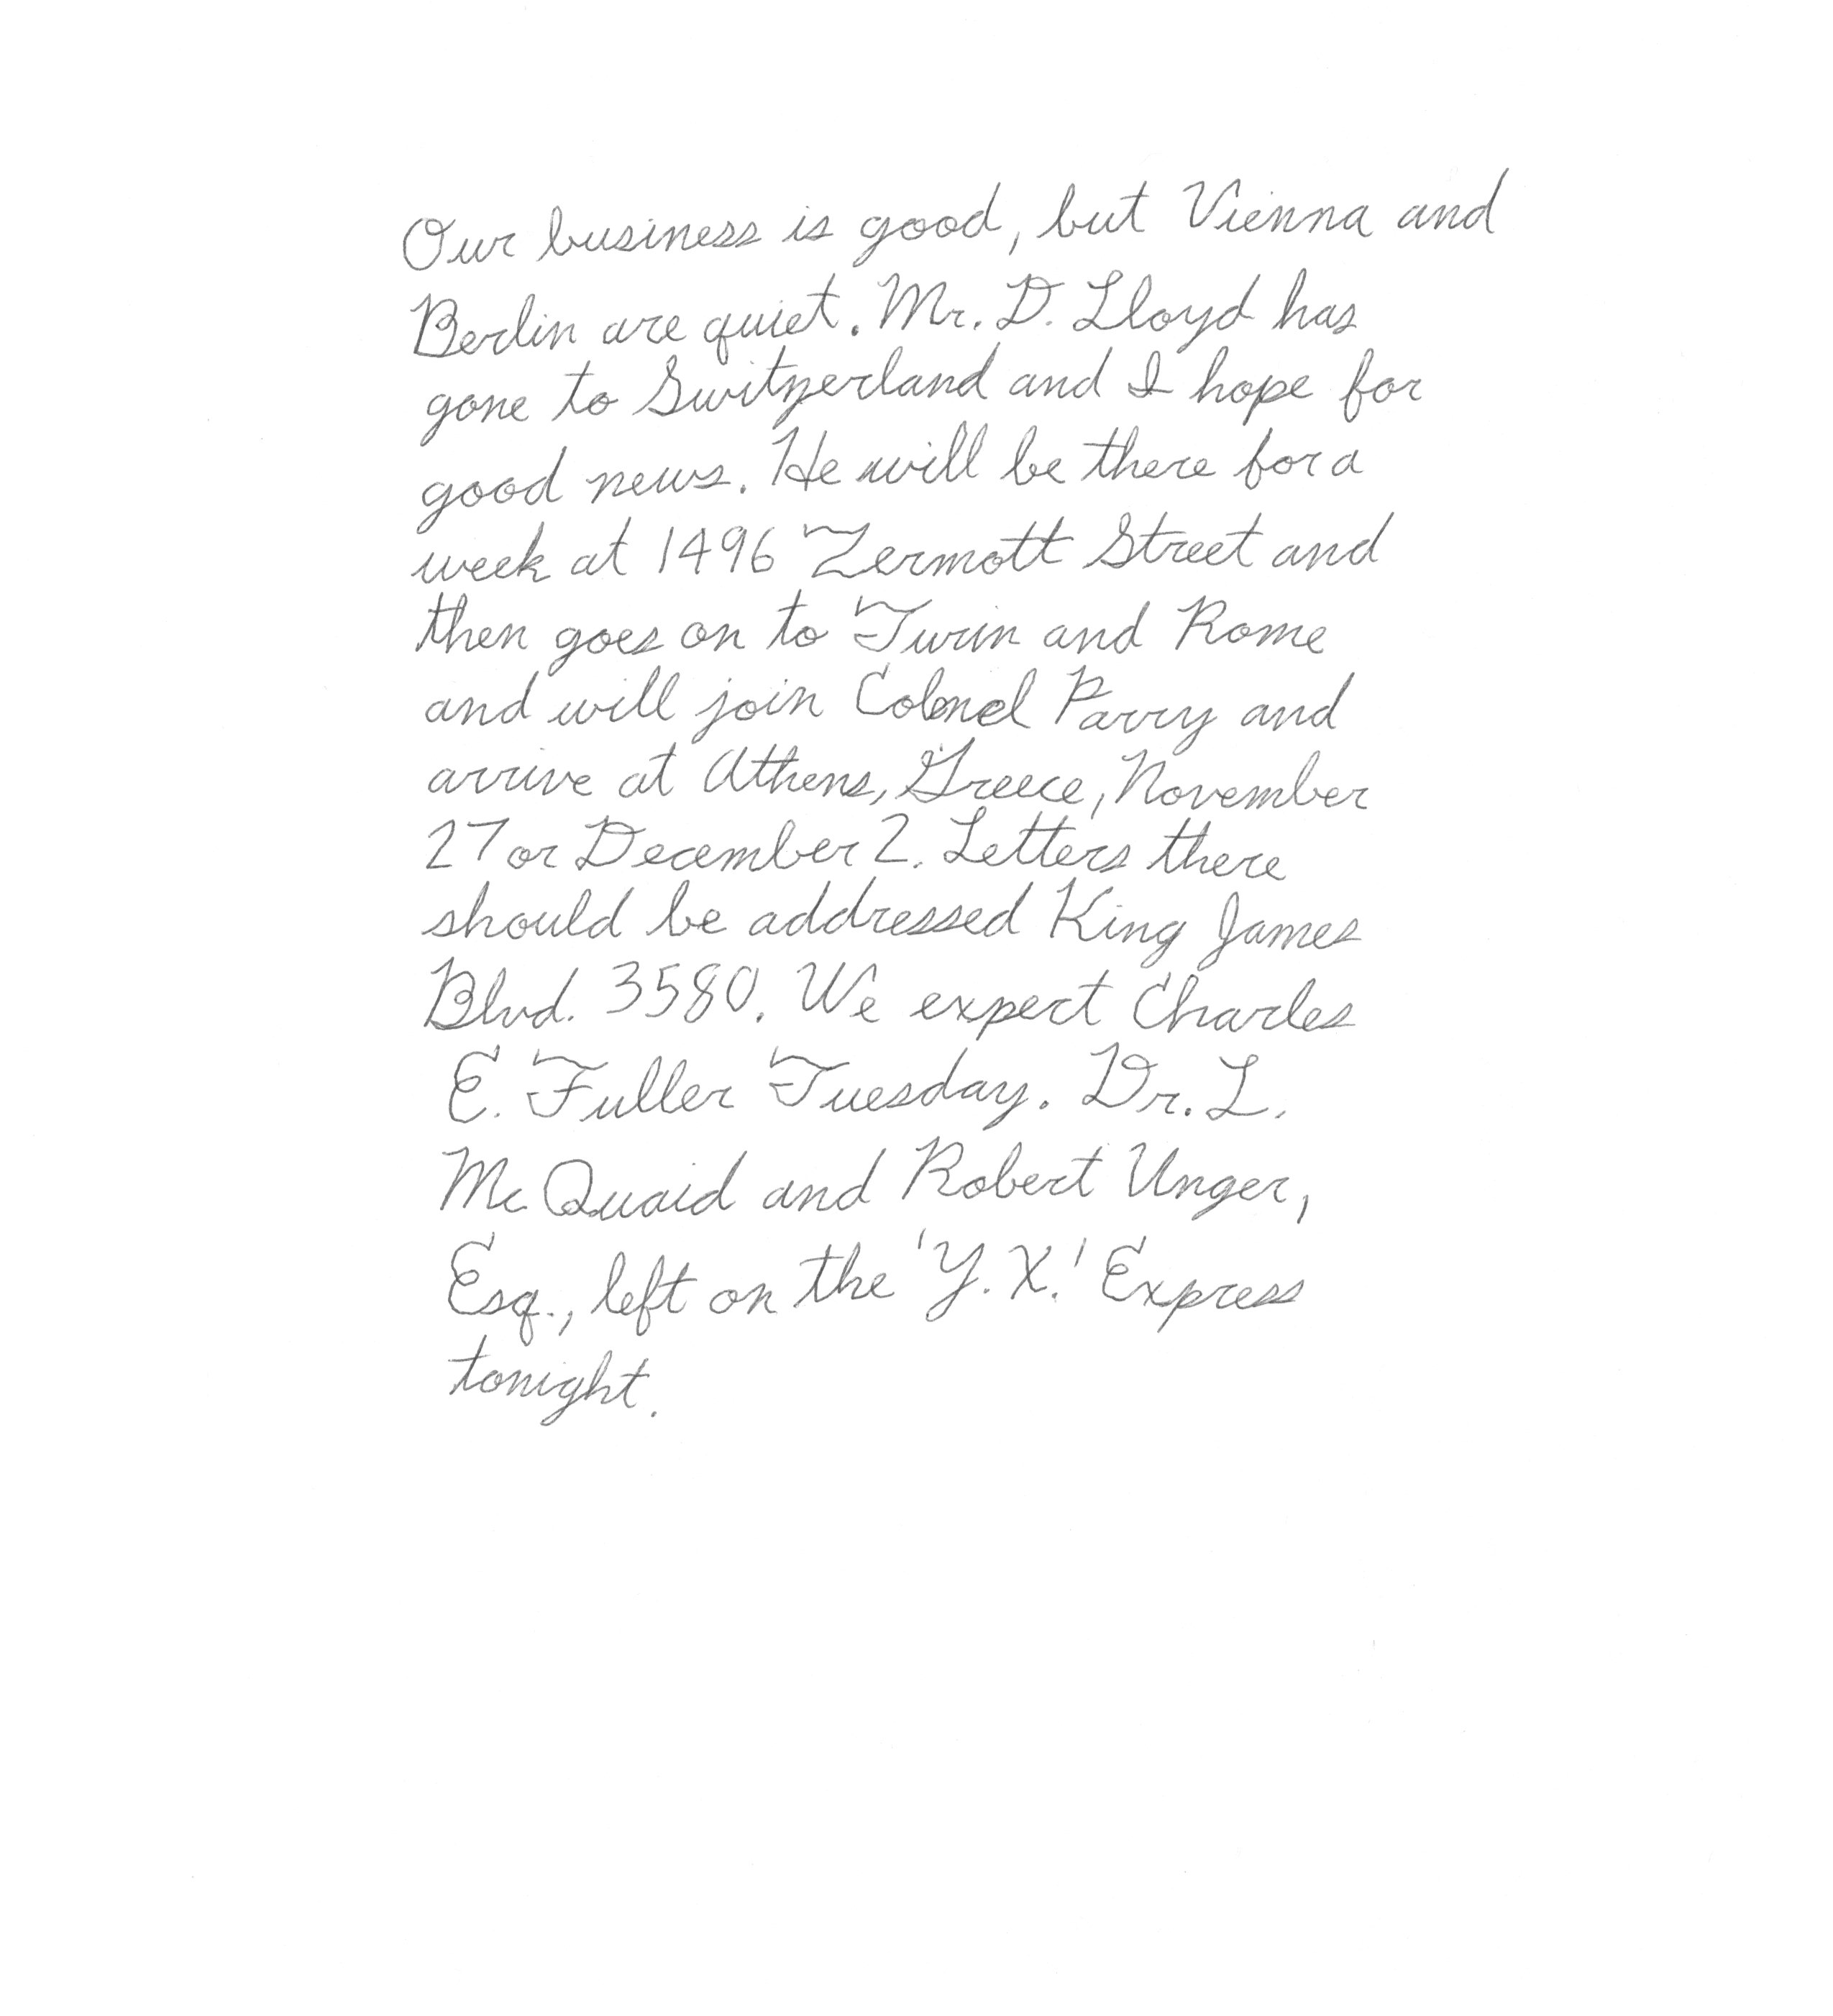 Our business is good, but Vienna and
Berlin are quiet. Mr. D. Lloyd has
gone to Switzerland and I hope for
good news. He will be there for a
week at 1496 Zermott Street and
then goes on to Turin and Rome
and will join Colonel Parry and
arrive at Athens, Greece, November
27 or December 2. Letters there
should be addressed King James
Blvd. 3580. We expect Charles
E. Fuller Tuesday. Dr. L.
McQuaid and Robert Unger,
Esq., left on the 'Y.X.' Express
tonight.